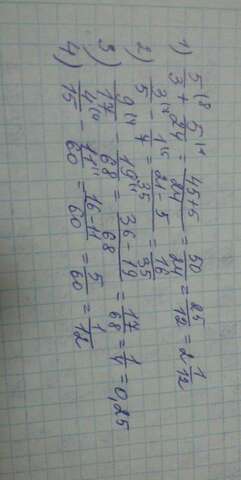 1) 5/3 (8 + 5/24 (1 = 45+5/24 = 50/24 = 25/12 = 2 1/12
2) 3/5 (7 - 1/7 (5 = 21-5/35 = 16/35
3) 9/17 (4 - 19/68 (1 = 36-19/68 = 17/68 = 1/4 = 0,25
4) 4/15 (4 - 11/60 (1 = 16-11/60 = 5/60 = 1/12